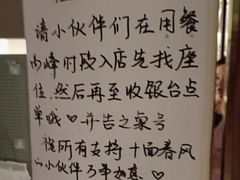 请小伙伴们在用餐
高峰时段入店先找座
位,然后再至收银台点
单哦♡并告之桌号
祝所有支持十面春风
的小伙伴万事如意♡